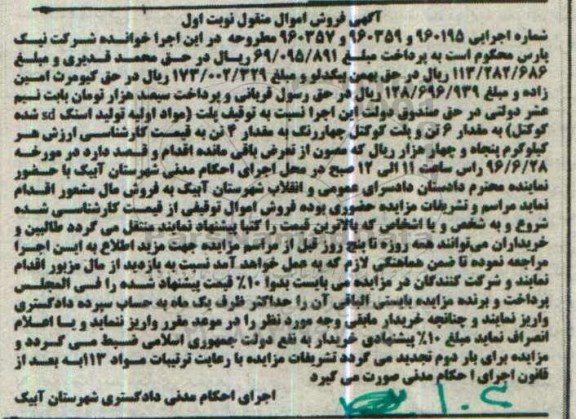 آگهی فروش اموال منقول نوبت اول
شماره اجرایی ۹۶۰۱۹۵ و ۹۶۰۳۵۹ و ۹۶۰۳۵۷ مطروحه در این اجرا خوانده شرکت نیک
پارس محکوم است به پرداخت مبلغ ۶۹/۰۹۵/۸۹۱ ریال در حق محمد قدیری و مبلغ
۱۱۳/۲۸۲/۶۸۶ ریال در حق بهمن بیگدلو و مبلغ ۱۷۳/۰۰۲/۳۲۹ ریال در حق کیومرث امین
زاده و مبلغ ۱۲۸/۶۹۶/۹۳۹ ریال در حق رسول قربانی و پرداخت سیصد هزار تومان بابت نیم
عشر دولتی در حق صندوق دولت این اجرا نسبت به توقیف پلت (مواد اولیه تولید اسنک sd شده
کوکتل) به مقدار ۶ تن و پلت کوکتل چهاررنگ به مقدار ۴ تن به قیمت کارشناسی ارزش هر
کیلوگرم پنجاه و چهار هزار ریال که مصون از تعرض باقی مانده اقدام و قصد دارد در مورخه
۹۶/۶/۲۸ راس ساعت ۱۱ الی ۱۲ صبح در محل اجرای احکام مدنی شهرستان آبیک با حضور
نماینده محترم دادستان دادسرای عمومی و انقلاب شهرستان آبیک به فروش مال مشعور اقدام
نماید مراسم و تشریفات مزایده حضوری بوده فروش اموال توقیفی از قیمت کارشناسی شده
شروع و به شخص و یا اشخاص که بالاترین قیمت را کتبا پیشنهاد نمایند منتقل می گردد طالبین و
خریداران می‌توانند همه روزه تا پنج روز قبل از مراسم مزایده جهت مزید اطلاع به این اجرا
مراجعه نموده تا ضمن هماهنگی لازم که به عمل خواهد آمد نسبت به بازدید از مال مزبور اقدام
نمایند و شرکت کنندگان در مزایده می بایست بدوا ۱۰٪ قیمت پیشنهاد شده را فی المجلس
پرداخت و برنده مزایده بایستی الباقی آن را حداکثر ظرف یک ماه به حساب سپرده دادگستری
واریز نمایند و چنانچه خریدار مابقی وجه مورد نظر را در موعد مقرر واریز ننماید و یا اعلام
انصراف نماید مبلغ ۱۰٪ پیشنهادی خریدار به نفع دولت جمهوری اسلامی ضبط می گردد و
مزایده برای بار دوم تجدید می گردد تشریفات مزایده با رعایت ترتیبات مواد ۱۱۳به بعد از
قانون اجرای ا حکام مدنی صورت می گیرد
اجرای احکام مدنی دادگستری شهرستان آبیک